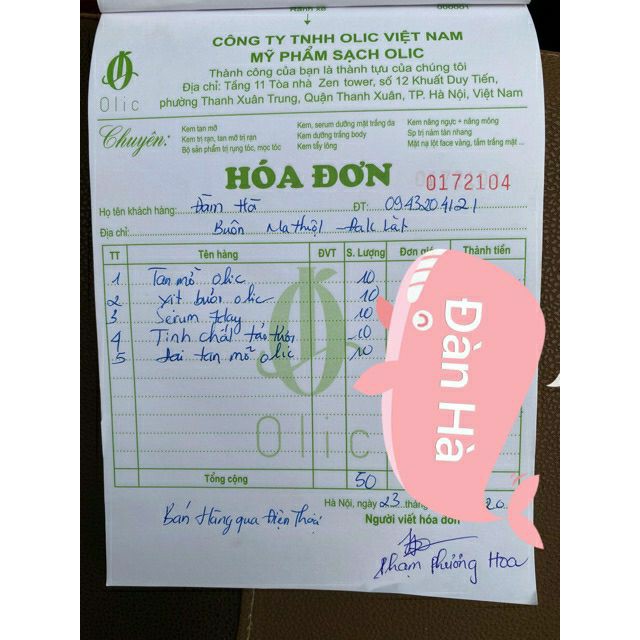 Olic
000001
CÔNG TY TNHH OLIC VIỆT NAM
MỸ PHẨM SẠCH OLIC
Thành công của bạn là thành tựu của chúng tôi
Địa chỉ: Tầng 11 Tòa nhà Zen tower, số 12 Khuất Duy Tiến,
phường Thanh Xuân Trung, Quận Thanh Xuân, TP. Hà Nội, Việt Nam
Chuyên:
Kem tan mỡ
Kem trị rạn, tan mỡ trị rạn
Bộ sản phẩm trị rụng tóc, mọc tóc
Kem, serum dưỡng mặt trắng da
Kem dưỡng trắng body
Kem tẩy lông
Kem nâng ngực + nâng mông
Sp trị nám tàn nhang
Mặt nạ lột face vàng, tắm trắng mặt ...
HÓA ĐƠN
0172104
Họ tên khách hàng: Đàm Hà ĐT: 0943204121
Địa chỉ: Buôn Ma thuột - Đak Lăk
TT Tên hàng ĐVT S. Lượng Đơn giá Thành tiền
1 Tan mỡ Olic 10
2 Xịt bưởi Olic 10
3 Serum 7day 10
4 Tinh chất tảo tươi 10
5 Đai tan mỡ Olic 10
Olic
Tổng cộng 50
Hà Nội, ngày 23 tháng 20
Bán Hàng qua Điện Thoại
Người viết hóa đơn
Phạm Phương Hoa
Đàn Hà